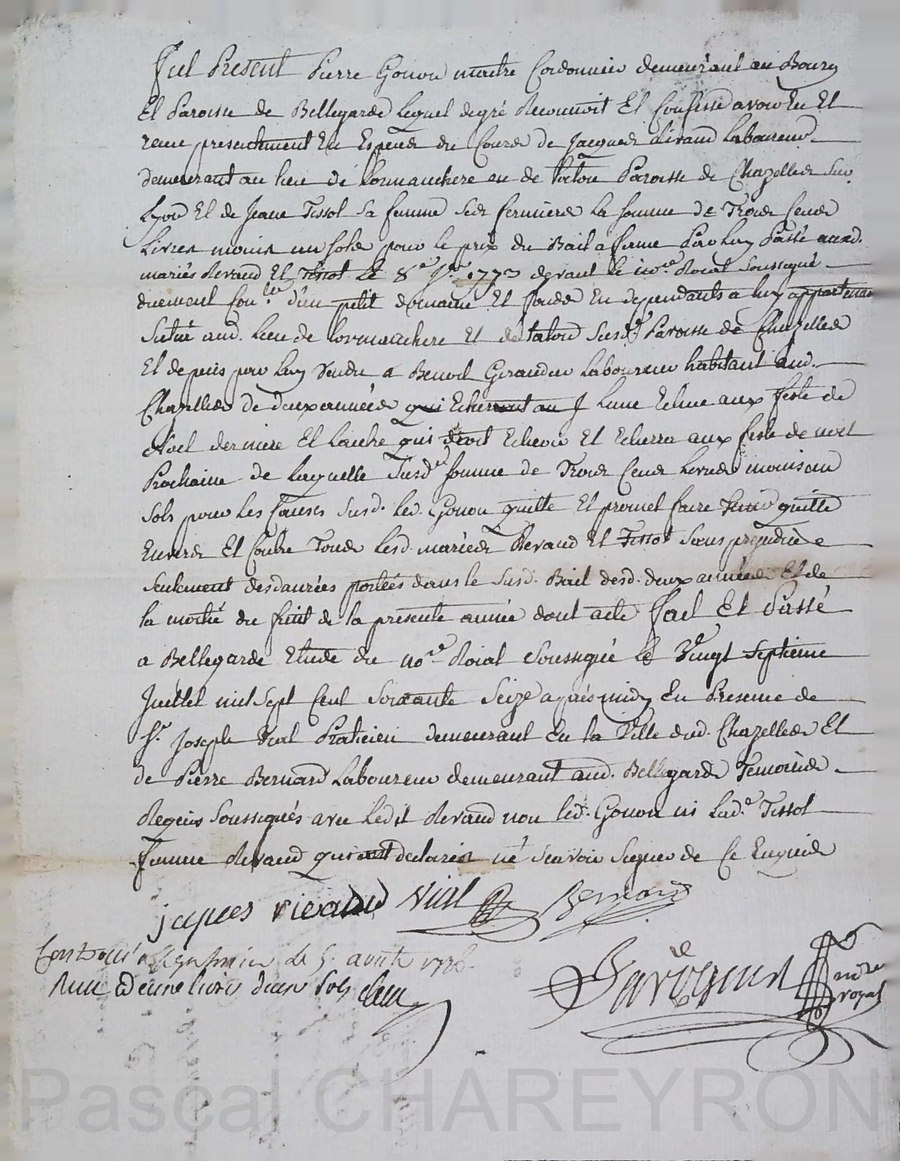 fut Present Pierre Gonon maitre Cordonnier demeurant au Bourg
Et Paroisse de Bellegarde Lequel de gré Reconnoit Et Confesse avoir Eu Et
receu presentement En Especes de Cours de Jacques Revaud Laboureur
demeurant au lieu de ou de Paroisse de Chazelles Sur
Lyon Et de Jeane Tissot Sa femme Ses fermiers La somme de Trois Cens
Livres moins un sols pour le prix du Bail a ferme Par Luy Passé auxd.
mariés Revaud Et Tissot Le 8.e 1773 devant le no.re Roial Soussigné
d'un petit domaine Et fonds En dependants a luy appartenant
Situé aud. Lieu de Et de Susd. Paroisse de Chazelles
Et depuis par Luy Vendu a Benoit Laboureur habitant aud.
Chazelles de deux années qui L'une Echue aux feste de
Noel derniere Et L'autre qui Echeoir Et Echerra aux feste de noel
Prochaine de Laquelle Susd. somme de Trois Cens Livres moins un
Sols pour Les Causes Susd. Led. Gonon quitte Et promet faire Tenir quitte
Envers Et Contre Tous Lesd. mariés Revaud Et Tissot Sans prejudice
Seulement des danrées portées dans le Susd. Bail desd. deux années Et de
la moitié du fruit de la presente année dont acte fait Et Passé
a Bellegarde Etude du no.re Roial Soussigné Le Vingt Septieme
Juillet mil Sept Cent Soixante Seize après midy En Presence de
S.r Joseph Vial Praticien demeurant En la Ville dud. Chazelles Et
de Pierre Bernard Laboureur demeurant aud. Bellegarde Temoins
Requis Soussignés avec Ledit Revaud non led. Gonon ni Lad.e Tissot
femme Revaud qui ont declarés ne Scavoir Signer de Ce Enquis
Vial Bernard
le 5 aoust 1776
livre d'un sols
no.re royal
Pascal CHAREYRON